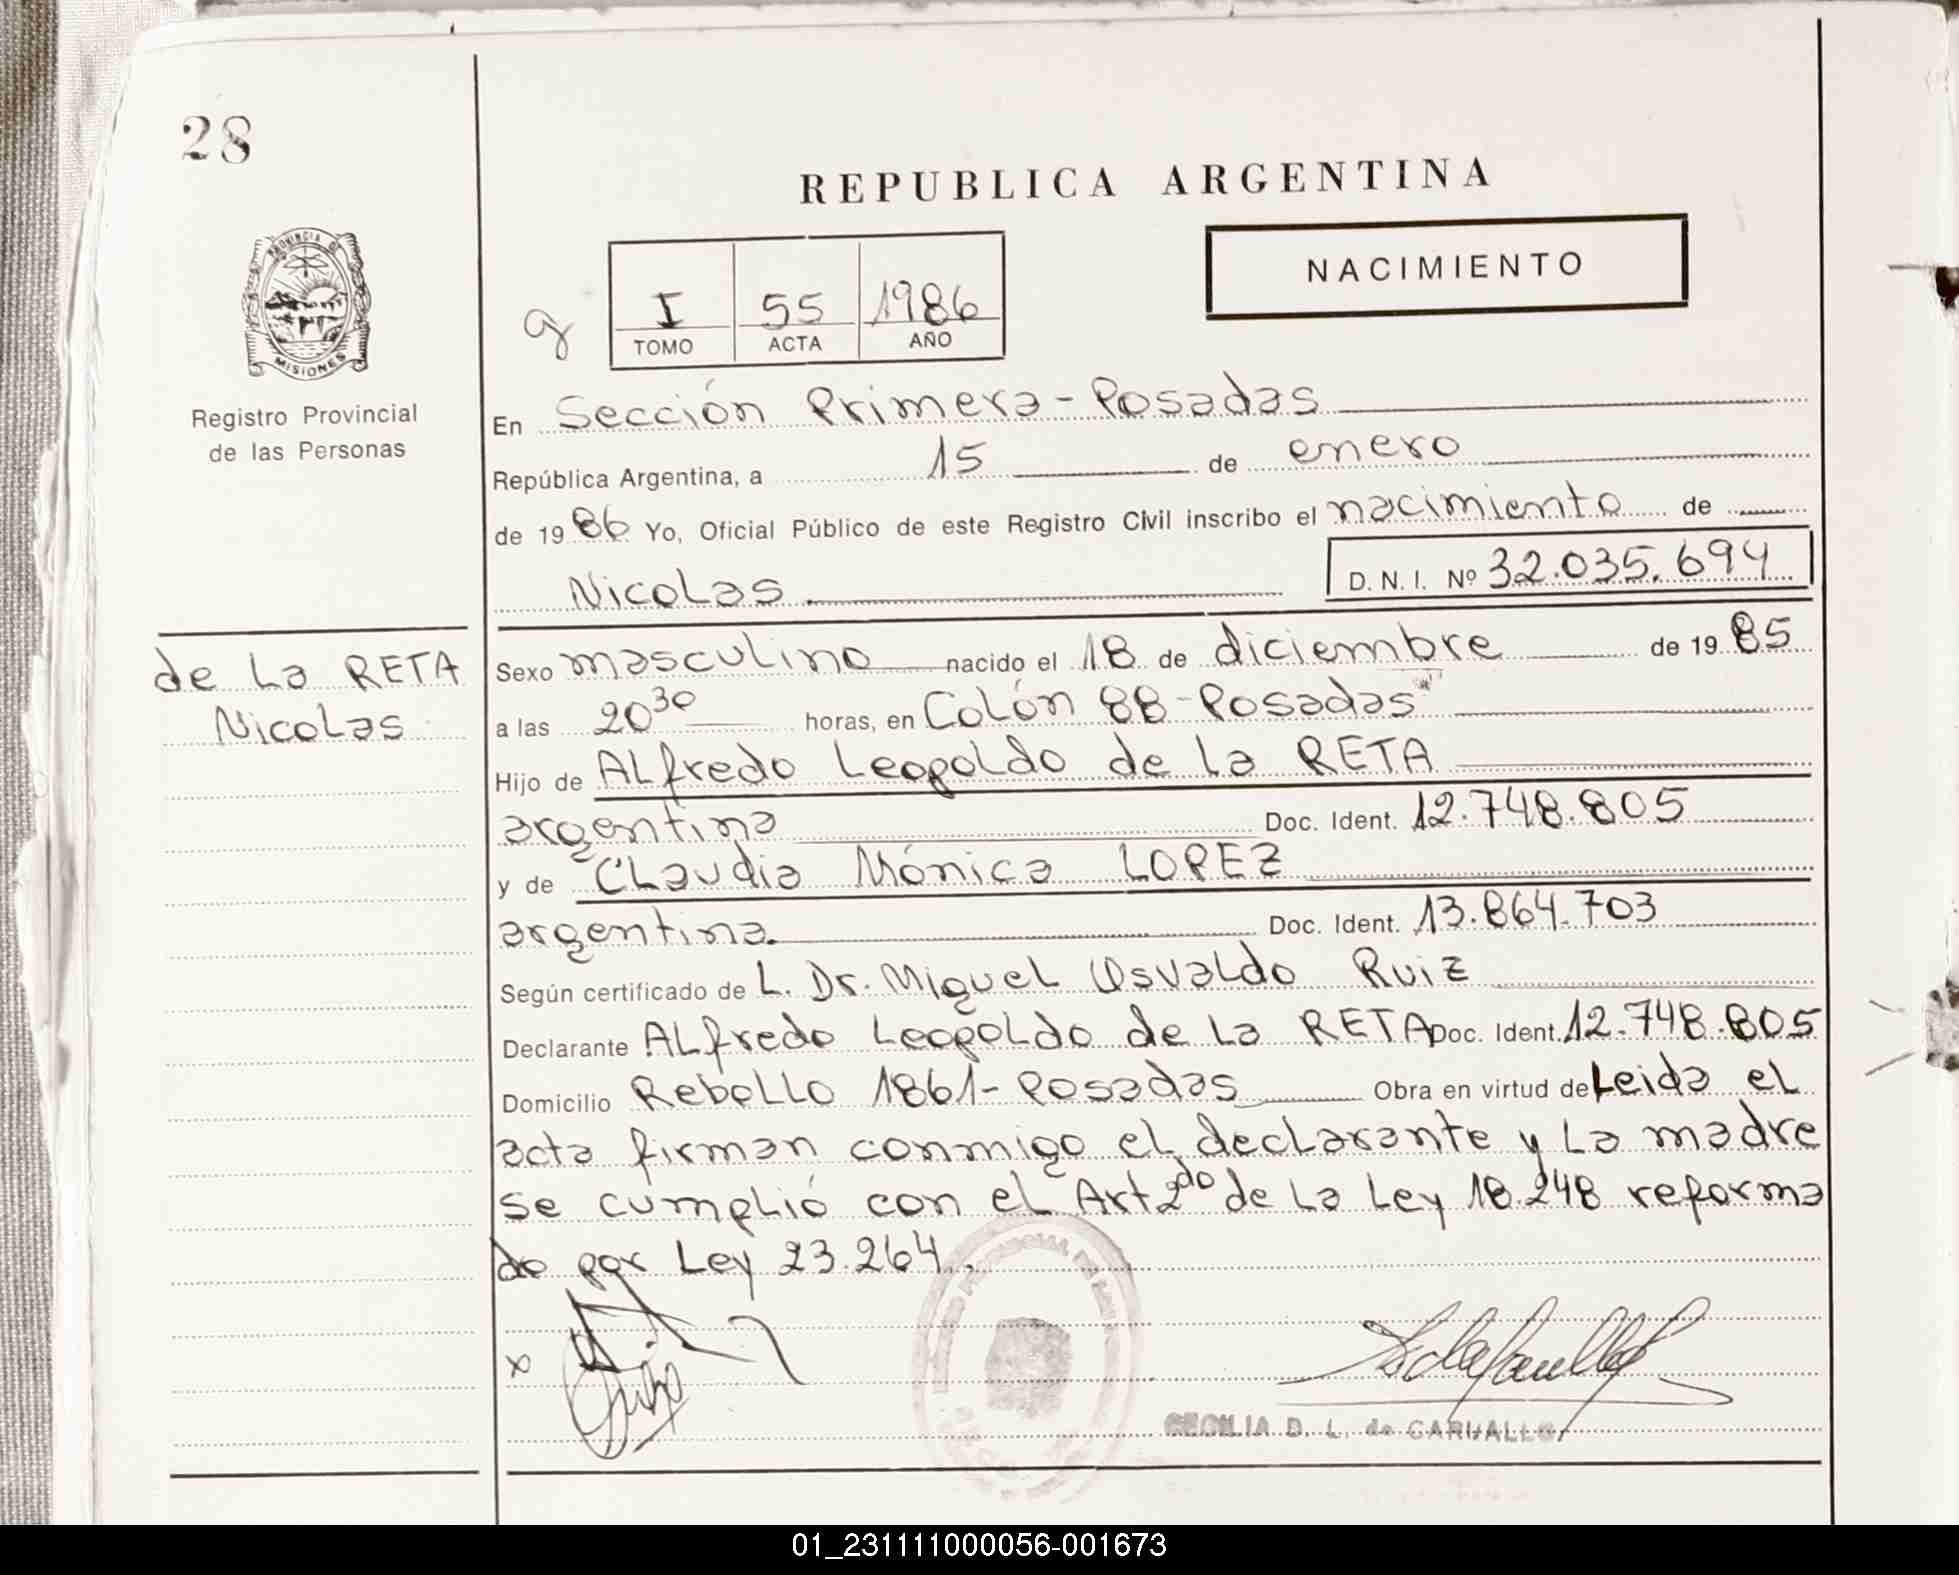 28
REPUBLICA ARGENTINA
NACIMIENTO
I 55 1986
TOMO ACTA AÑO
PROVINCIA DE
MISIONES
Registro Provincial
de las Personas
En Sección Primera - Posadas
República Argentina, a 15 de enero
de 19 86 Yo, Oficial Público de este Registro Civil inscribo el nacimiento de
Nicolas D. N. I. Nº 32.035.694
de La RETA
Nicolas
Sexo masculino nacido el 18 de diciembre de 19 85
a las 20 30 horas, en Colón 88 - Posadas
Hijo de ALfredo Leopoldo de La RETA
argentina Doc. Ident. 12.748.805
y de CLaudia Mónica LOPEZ
argentina. Doc. Ident. 13.864.703
Según certificado de L. Dr. Miguel Osvaldo Ruiz
Declarante ALfredo Leopoldo de La RETA Doc. Ident. 12.748.805
Domicilio RebolLo 1861 - Posadas Obra en virtud de Leida el
acta firman conmigo el declarante y La madre
se cumplió con el Art 2do de La Ley 18.248 reforma
do por Ley 23.264.
x
CECILIA D. L. de CARVALLO
01_231111000056-001673